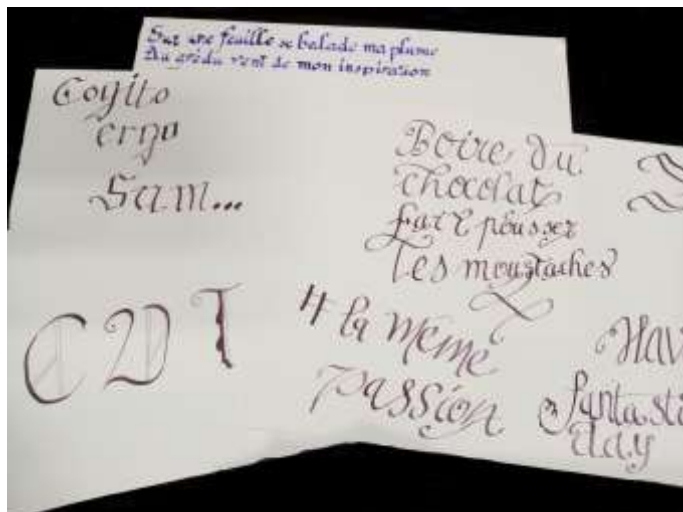 Sur une feuille se balade ma plume
Au grédu vent de mon inspiration
Cogito
ergo
Sum...
Boire du
chocolat
fait pousser
les moustaches
CDT
la même
passion
Hav
fantasti
day